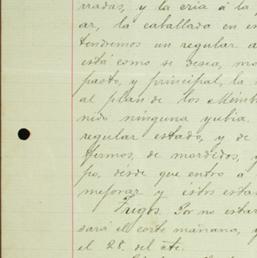 rradas, y la cria á la
ar, la caballada en es
tendremos un regular a
está como se desea, mo
pasto, y principal, la
al plan de los Mimb
nido ninguna yubia.
regular estado, y de
fermos, de mordidos, y
po, desde que entro a
mejorar y éstos esta
Trigos. Por no estar
sará el corte mañana, y
el 28. del áte.